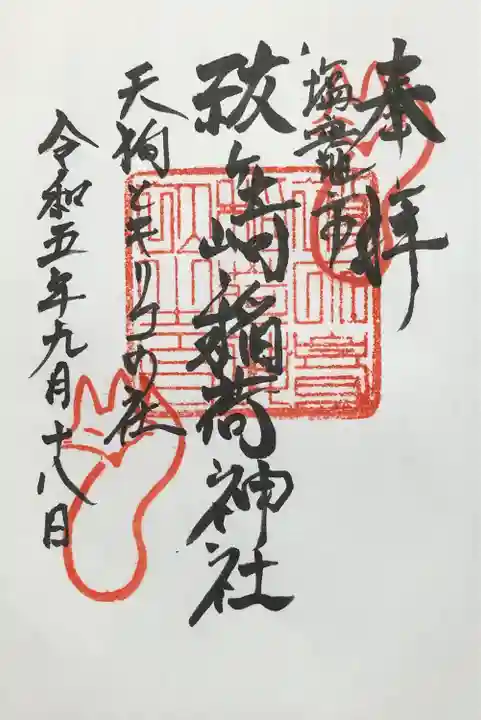 奉拝
塩竈市
祓ヶ崎稲荷神社
天狗とキツネの社
令和五年九月十八日